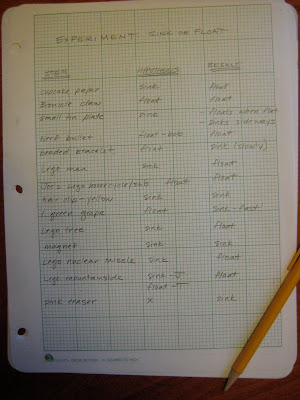 EXPERIMENT: SINK OR FLOAT
ITEM HYPOTHESIS RESULT
cupcake paper sink float
Bionicle claw float float
small tin plate sink - floats when flat
sinks sideways
nerf bullet float - float
beaded bracelet float sink (slowly)
Lego man sink float
Joe's Lego motorcycle/ float float
hair clip - yellow sink sink
1 green grape float sink - fast!
Lego tree sink float
magnet sink sink
Lego nuclear missile sink float
Lego mountainside sink - J float
float - T
pink eraser x sink